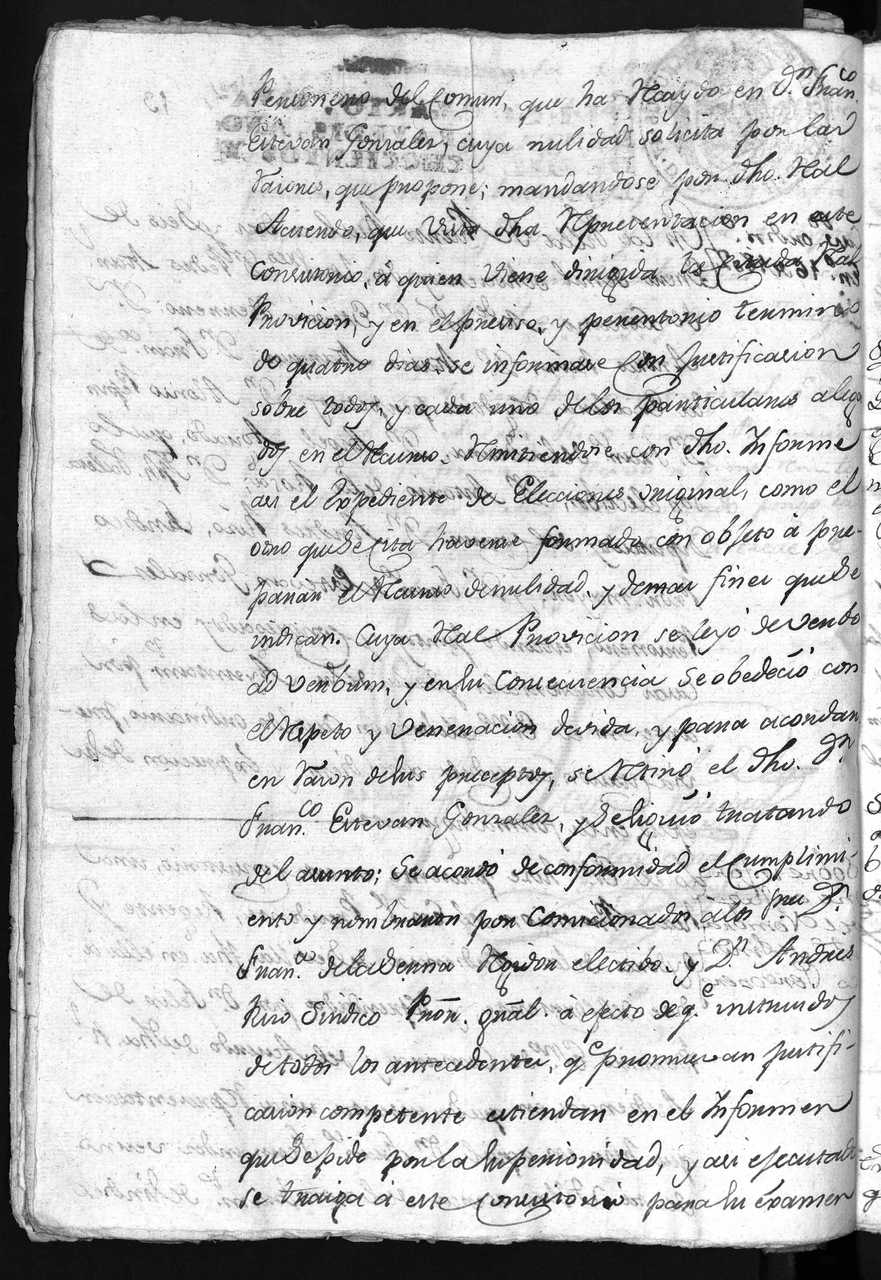 Personero del Comun, que ha Recaydo en Dn. Franco
Estevan Gonzalez, cuya nulidad solicita por las
razones, que propone; mandandose por dho. Real
Acuerdo, que vista dha Representacion en este
Consistorio, â quien viene dirigida la Real
Provicion, y en el preciso, y perentorio termino
de quatro dias, se informase con justificacion
sobre todos, y cada uno de los particulares alega
dos en el Recurso, Remitiendose con dho. Informe
asi el Expediente de Elecciones original, como el
otro que se cita haverse formado con objeto â pre-
parar el Recurso de nulidad, y demas fines que se
indican. Cuya Real Provicion se leyó de verbo
ad verbum, y en su Consecuencia se obedeció con
el Respeto y Veneracion devida, y para acordar
en razon de sus preceptos, se Retiró el dho. Dn
Franco. Estevan Gonzalez, y se siguió tratando
del asunto; se acordó de conformidad el Cumplimi-
ento y nombraron por Comicionados â los Sres D.
Franco. de la Serna Regidor electibo, y Dn. Andres
Rico Sindico Pror. gral. â efecto de qe. instruidos
de todos los antecedentes, qe promuevan justifi-
cacion competente estiendan en el Informen
que se pide por la Superioridad, y asi ejecutado
se traiga â este Consistorio para su examen